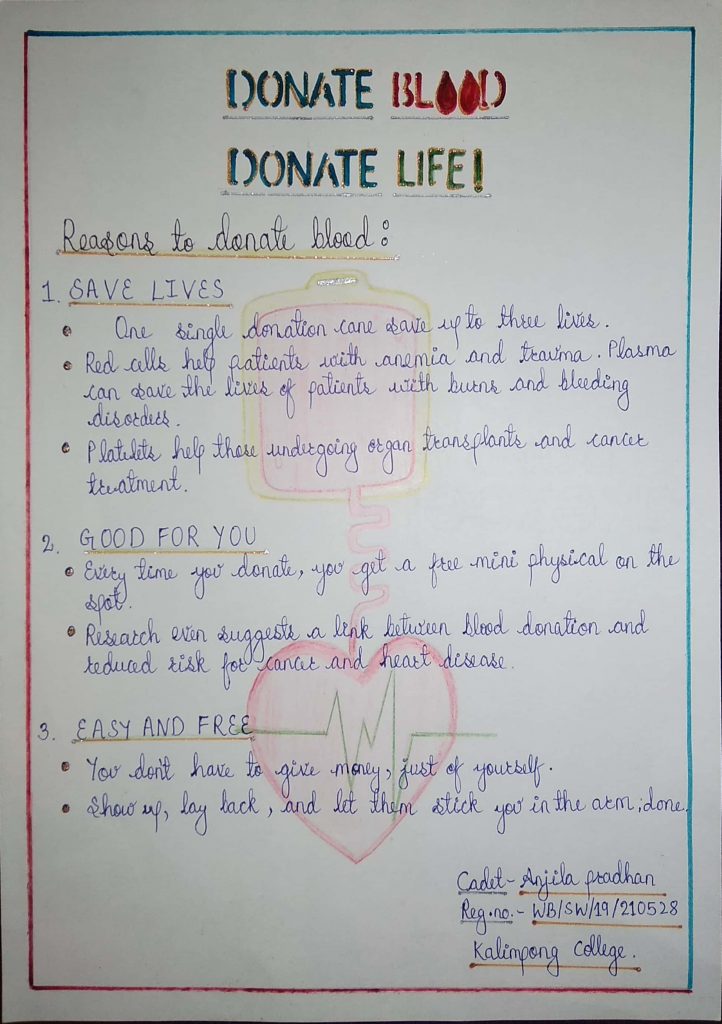 DONATE BLOOD
DONATE LIFE!
Reasons to donate blood:
1. SAVE LIVES
• One single donation cane save up to three lives.
• Red cells help patients with anemia and trauma. Plasma
can save the lives of patients with burns and bleeding
disorders.
• Platelets help those undergoing organ transplants and cancer
treatment.
2. GOOD FOR YOU
• Every time you donate, you get a free mini physical on the
spot.
• Research even suggests a link between blood donation and
reduced risk for cancer and heart disease.
3. EASY AND FREE
• You don't have to give money, just of yourself.
• Show up, lay back, and let them stick you in the arm; done.
Cadet- Anjila pradhan
Reg.no.- WB/SW/19/210528
Kalimpong College.